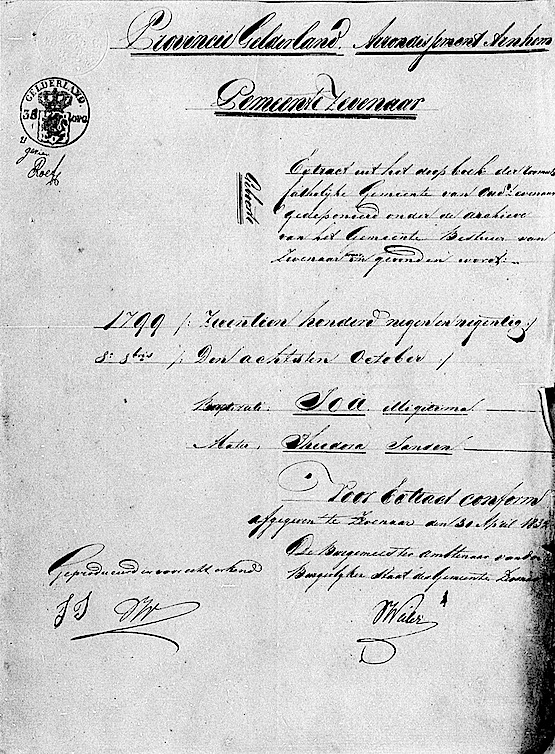 Provincie Gelderland. Arrondissement Arnhem
Gemeente Zevenaar
GELDERLAND
38
Geboorte
Extract uit het doopboek der Roomsch
Catholijke Gemeente van Oud Zevenaar
gedeponeerd onder de Archieve
van het Gemeente Bestuur van
Zevenaar waar in gevonden wordt:
1799 /: Zeventien honderd negen en negentig :/
8: 8bris /: Den achtsten October :/
Baptizata: Joa illegitima
Mater, Theodora Jansen
Voor Extract conform
afgegeven te Zevenaar den 30 April
De Burgemeester Ambtenaar van den
Burgerlijken Staat der Gemeente Zevenaar
Geproduceerd en voor echt erkend